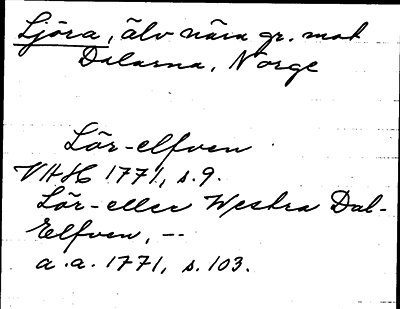 Ljöra, älv nära gr. mot
Dalarna, Norge
Lör-elfven
VHH 1771, s. 9.
Lör- eller Westra Dal-
Elfven, --
a.a. 1771, s. 103.